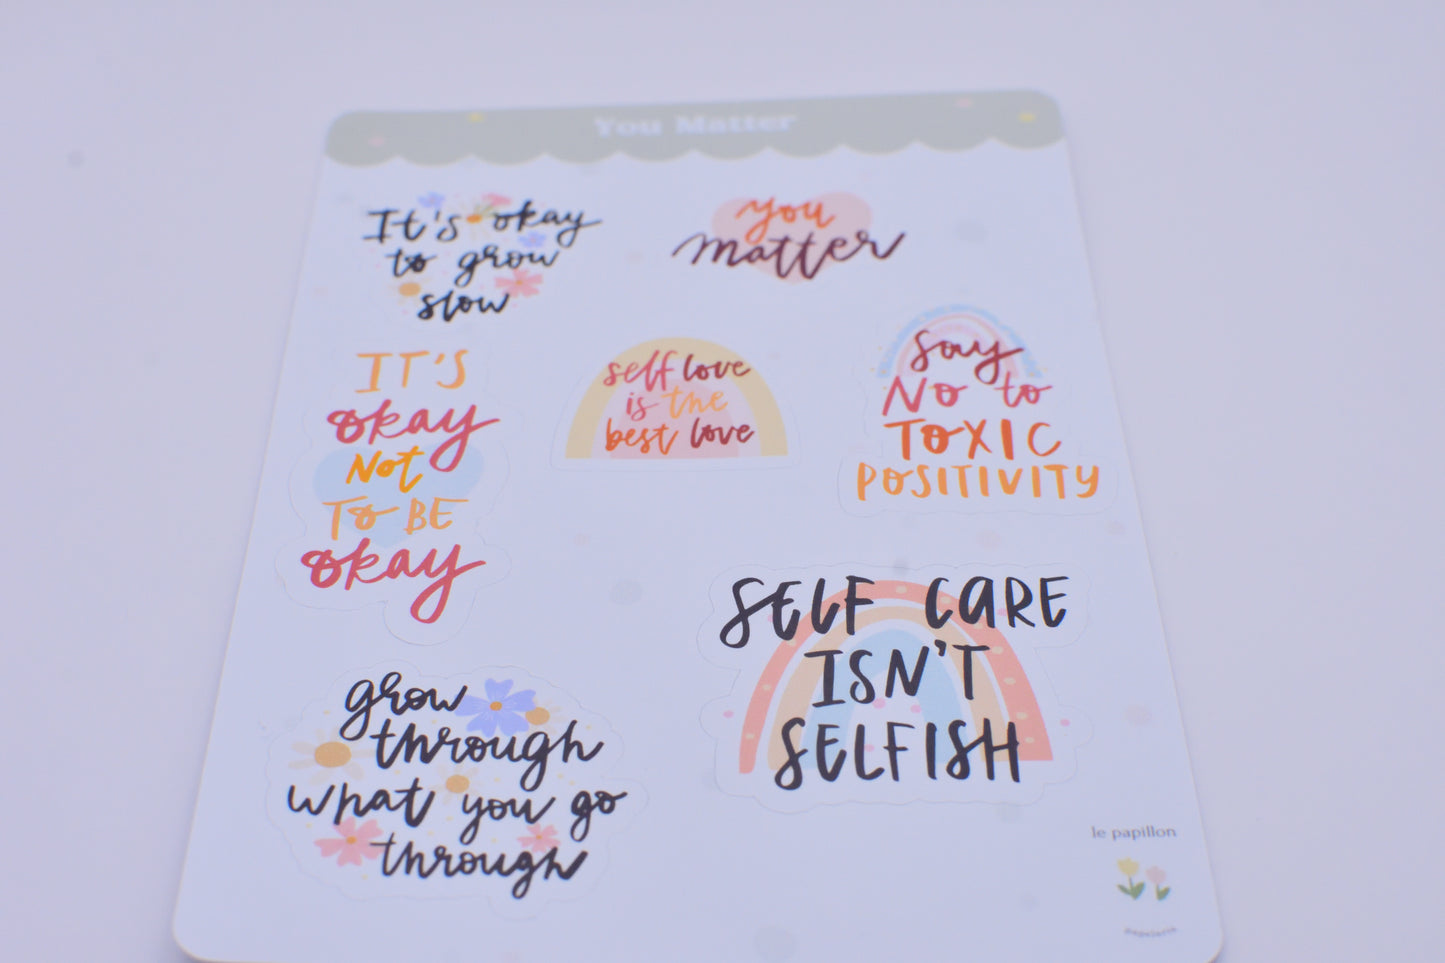 You Matter
It's okay
to grow
slow
you
matter
IT'S
okay
Not
To BE
okay
self love
is the
best love
Say
No to
TOXIC
POSITIVITY
SELF CARE
ISN'T
SELFISH
grow
through
what you go
through
le papillon
papeterie